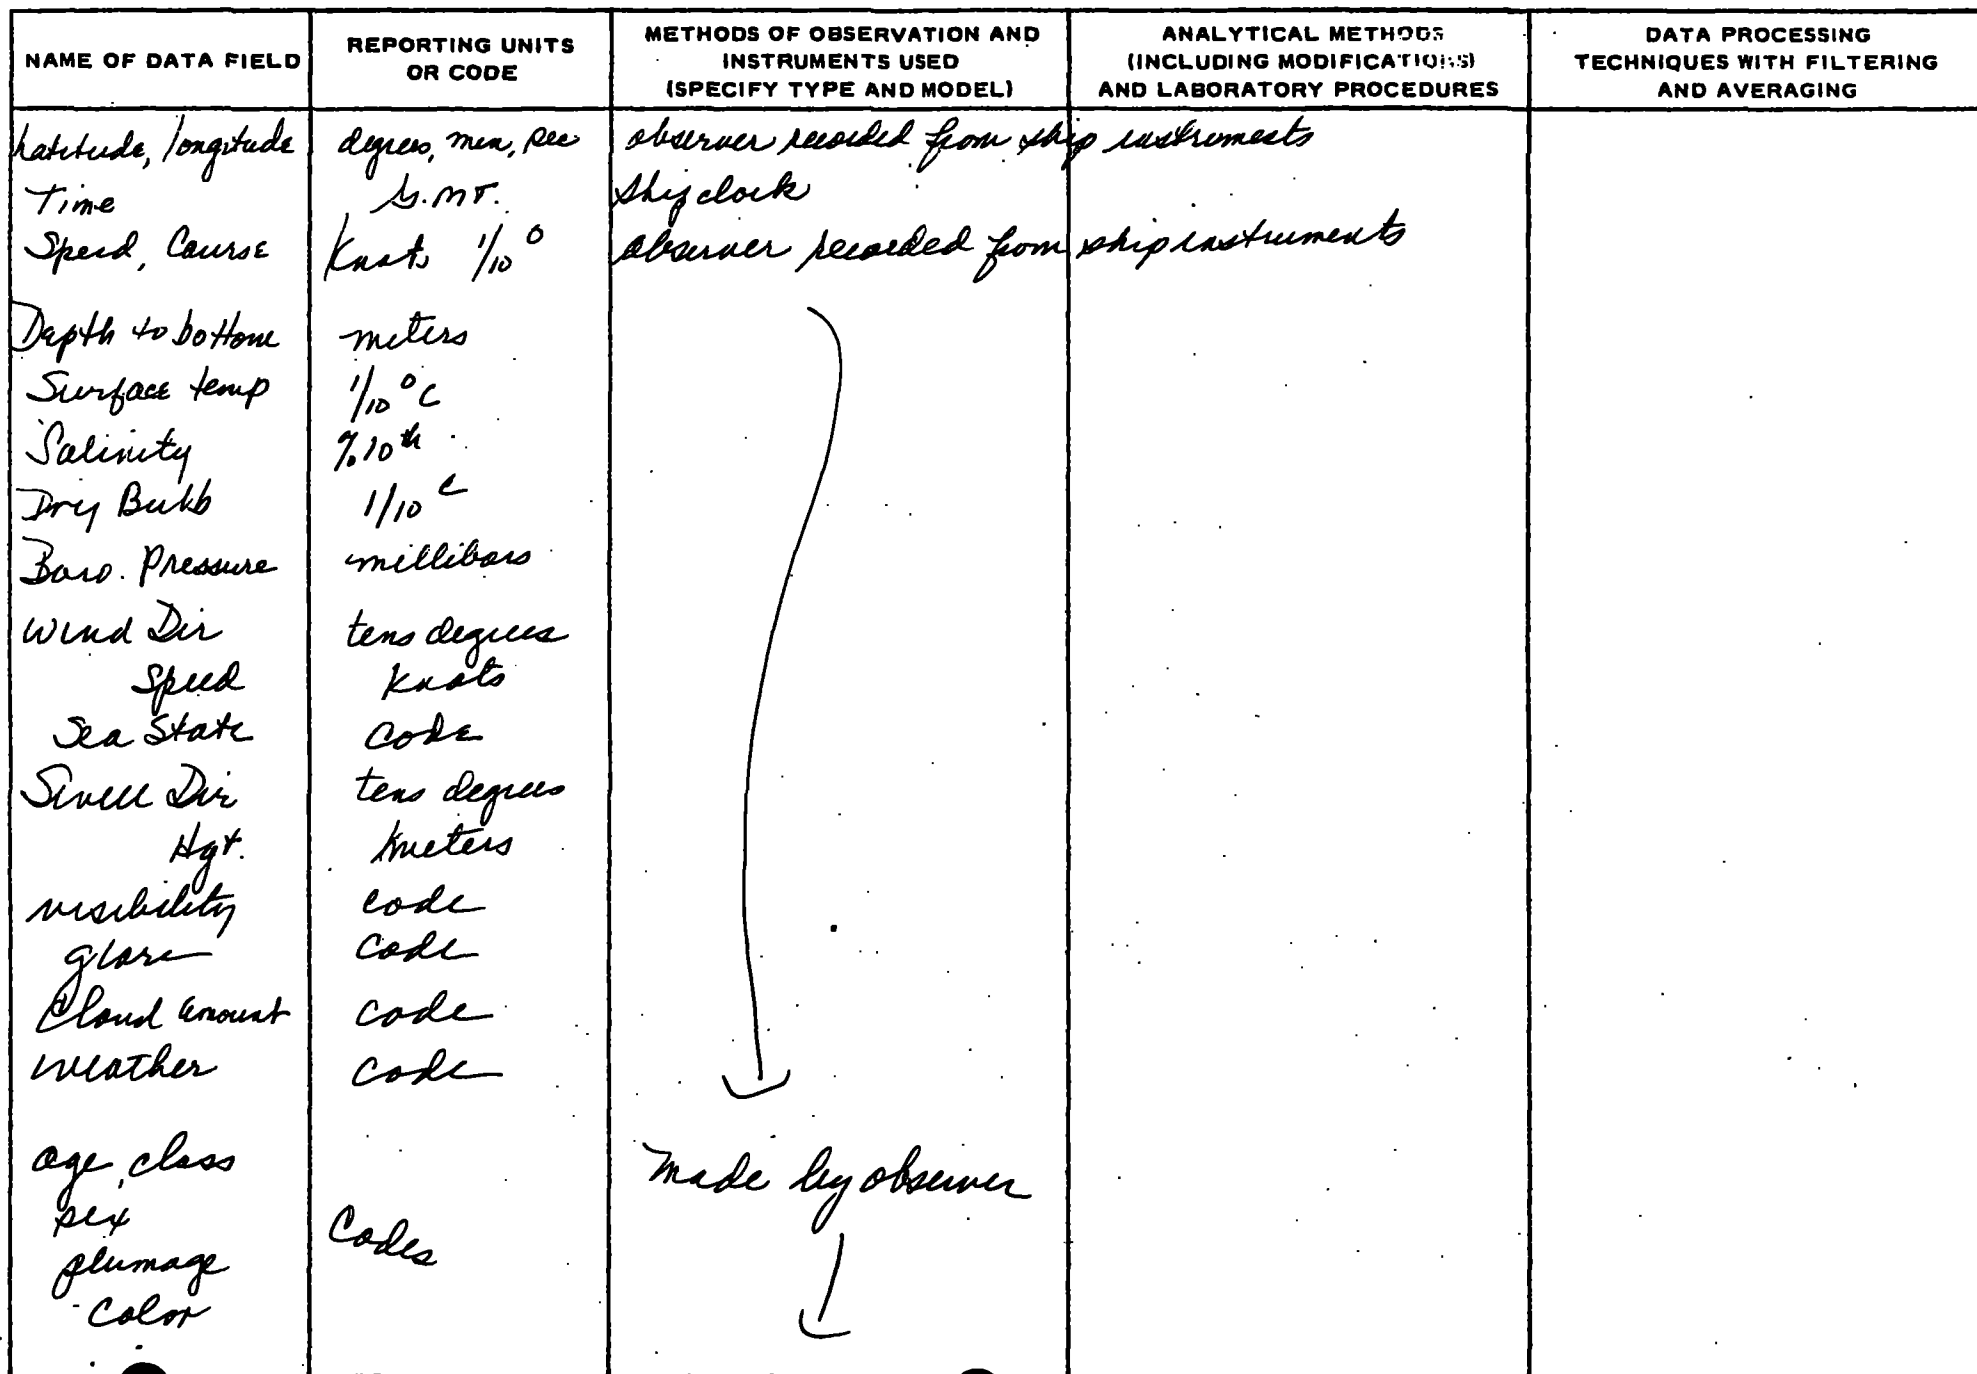 NAME OF DATA FIELD
REPORTING UNITS
OR CODE
METHODS OF OBSERVATION AND
INSTRUMENTS USED
(SPECIFY TYPE AND MODEL)
ANALYTICAL METHODS
(INCLUDING MODIFICATIONS)
AND LABORATORY PROCEDURES
DATA PROCESSING
TECHNIQUES WITH FILTERING
AND AVERAGING
Latitude, longitude degrees, min, sec observer recorded from ship instruments
Time G.M.T. Ship clock
Speed, Course Knots 1/10 ° observer recorded from ship instruments
Depth to bottom meters
Surface temp 1/10 °C
Salinity 10th
Dry Bulb 1/10 C
Baro. Pressure millibars
Wind Dir tens degrees
Speed Knots
Sea State Code
Swell Dir tens degrees
Hgt. meters
visibility code
glare code
Cloud amount code
weather code
age, class made by observer
sex
Codes
plumage
Color